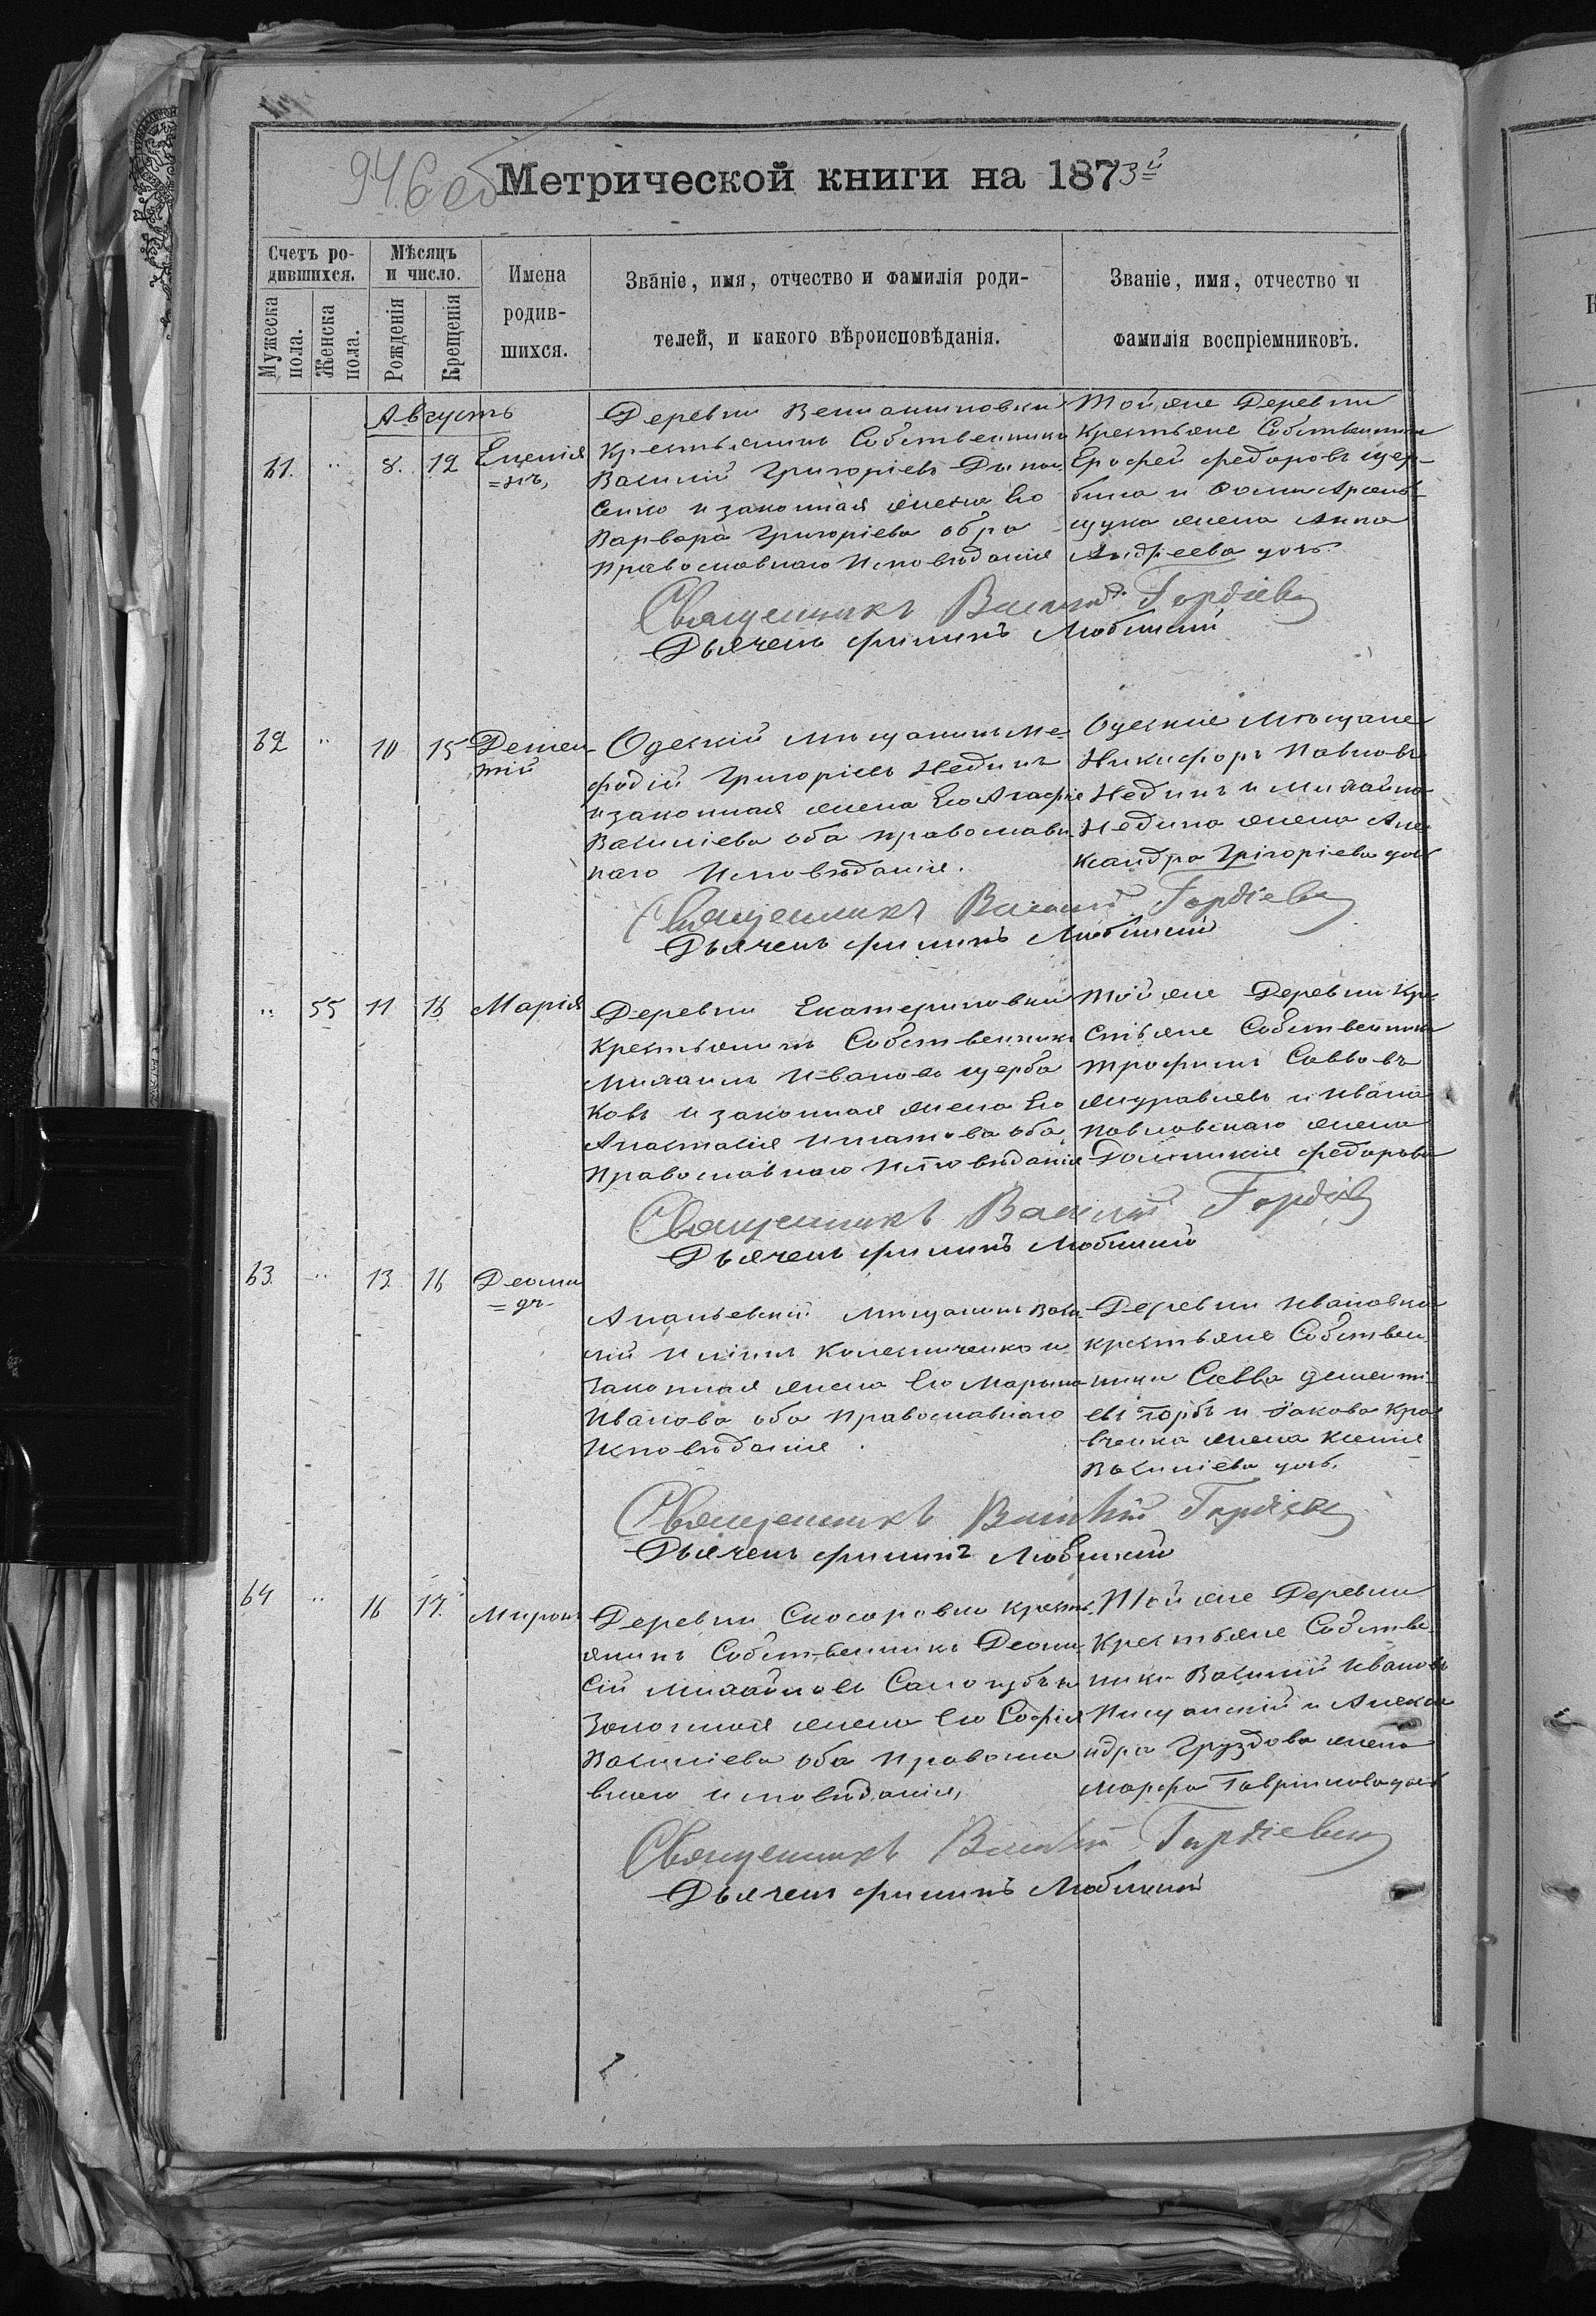 946 об
Метрической книги на 1873й
Счетъ ро-
дившихся.
Мѣсяцъ
и число.
Мужеска
пола.
Женска
пола.
Рожденія
Крещенія
Имена
родив-
шихся.
Званіе, имя, отчество и фамилія роди-
телей, и какого вѣроисповѣданія.
Званіе, имя, отчество и
фамилія воспріемниковъ.
Августъ
61. " 8. 12
Деревни
Крестьянинъ Собственникъ
Василій Григоріевъ
сенко и законная жена Его
Варвара Григоріева оба
Православнаго Исповѣданія
Той же Деревни
Крестьяне Собственники
Ерофей Федоровъ Щер-
бина и
жена Анна
Андреева дочь.
Священникъ Василій Гордіевъ
Дьячекъ Филипъ Любицкій
62 " 10 15 Демен-
тій
Одескій Мѣщанинъ Ме-
фодій Григоріевъ Нединъ
и законная жена Его Агафія
Василіева оба православн
наго Исповѣданія.
Одескіе Мѣщане
Никифоръ Павловъ
Нединъ и Михайла
Недина жена Але
ксандра Григоріева дочь
Священникъ Василій Гордіевъ
Дьячекъ Филипъ Любицкій
" 55 11 16 Марія
Деревни Екатериновки
Крестьянинъ Собственникъ
Михаилъ Ивановъ Щерба
ковъ и законная жена Его
Анастасія Игнатова оба
Православнаго Исповѣданія
Той же Деревни Кре
стьяне Собственники
Трофимъ Савовъ
Журавлевъ и Ивана
Павловскаго жена
Домникія Федорова
Священникъ Василій Гордіевъ
Дьячекъ Филипъ Любицкій
63. " 13. 16 Деоми
=дъ-
Ананьевскій Мѣщанинъ Васи
лій Илiинъ Колесниченко и
законная жена Его Марина
Иванова оба Православнаго
Исповѣданія.
Деревни Ивановки
крестьяне Собствен
ники Савва Дементі
евъ Горбъ и Іакова Кра
вченка жена Ксенія
Василіева дочь.
Священникъ Василій Гордіевъ
Дьячекъ Филипъ Любицкій
64 " 16 17. Миронъ
Деревни Скосаровки Кресть
янинъ Собственникъ Деони
сій Михайловъ и
Законная жена Его Софія
Василіева оба Правосла
внаго исповѣданія,
Той же Деревни
Крестьяне Собстве
ники Василій Ивановъ
Пищанскій и Алекса
ндра Груздова жена
Марфа Гаврилова дочь
Священникъ Василій Гордіевъ
Дьячекъ Филипъ Любицкій